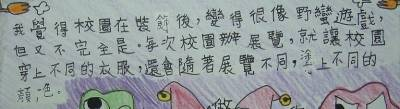 我覺得校園在裝飾後，變得很像野蠻遊戲，
但又不完全是。每次校園辦展覽，就讓校園
穿上不同的衣服，還會隨著展覽不同，塗上不同的
顏色。